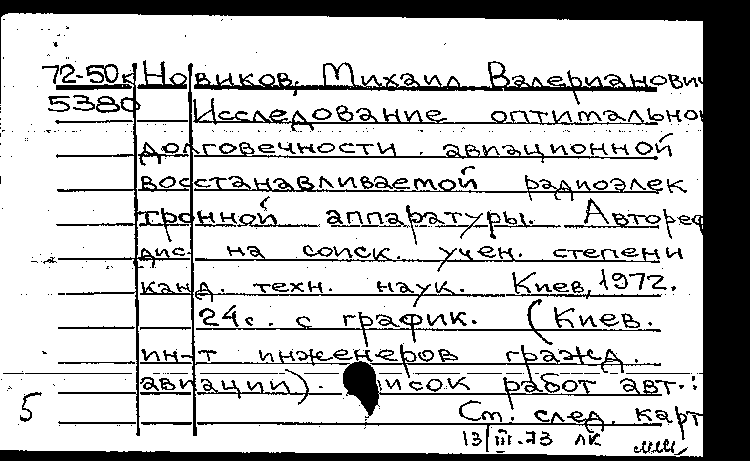 72-50к Новиков, Михаил Валерианович
5380 Исследование оптимальной
долговечности авиационной
восстанавливаемой радиоэлек
тронной аппаратуры. Автореф
дис. на соиск. учен. степени
канд. техн. наук. Киев, 1972.
24с. с график. (Киев.
ин-т инженеров гражд.
авиации). исок работ авт.:
5 См. след. карт
13/III-73 ЛК